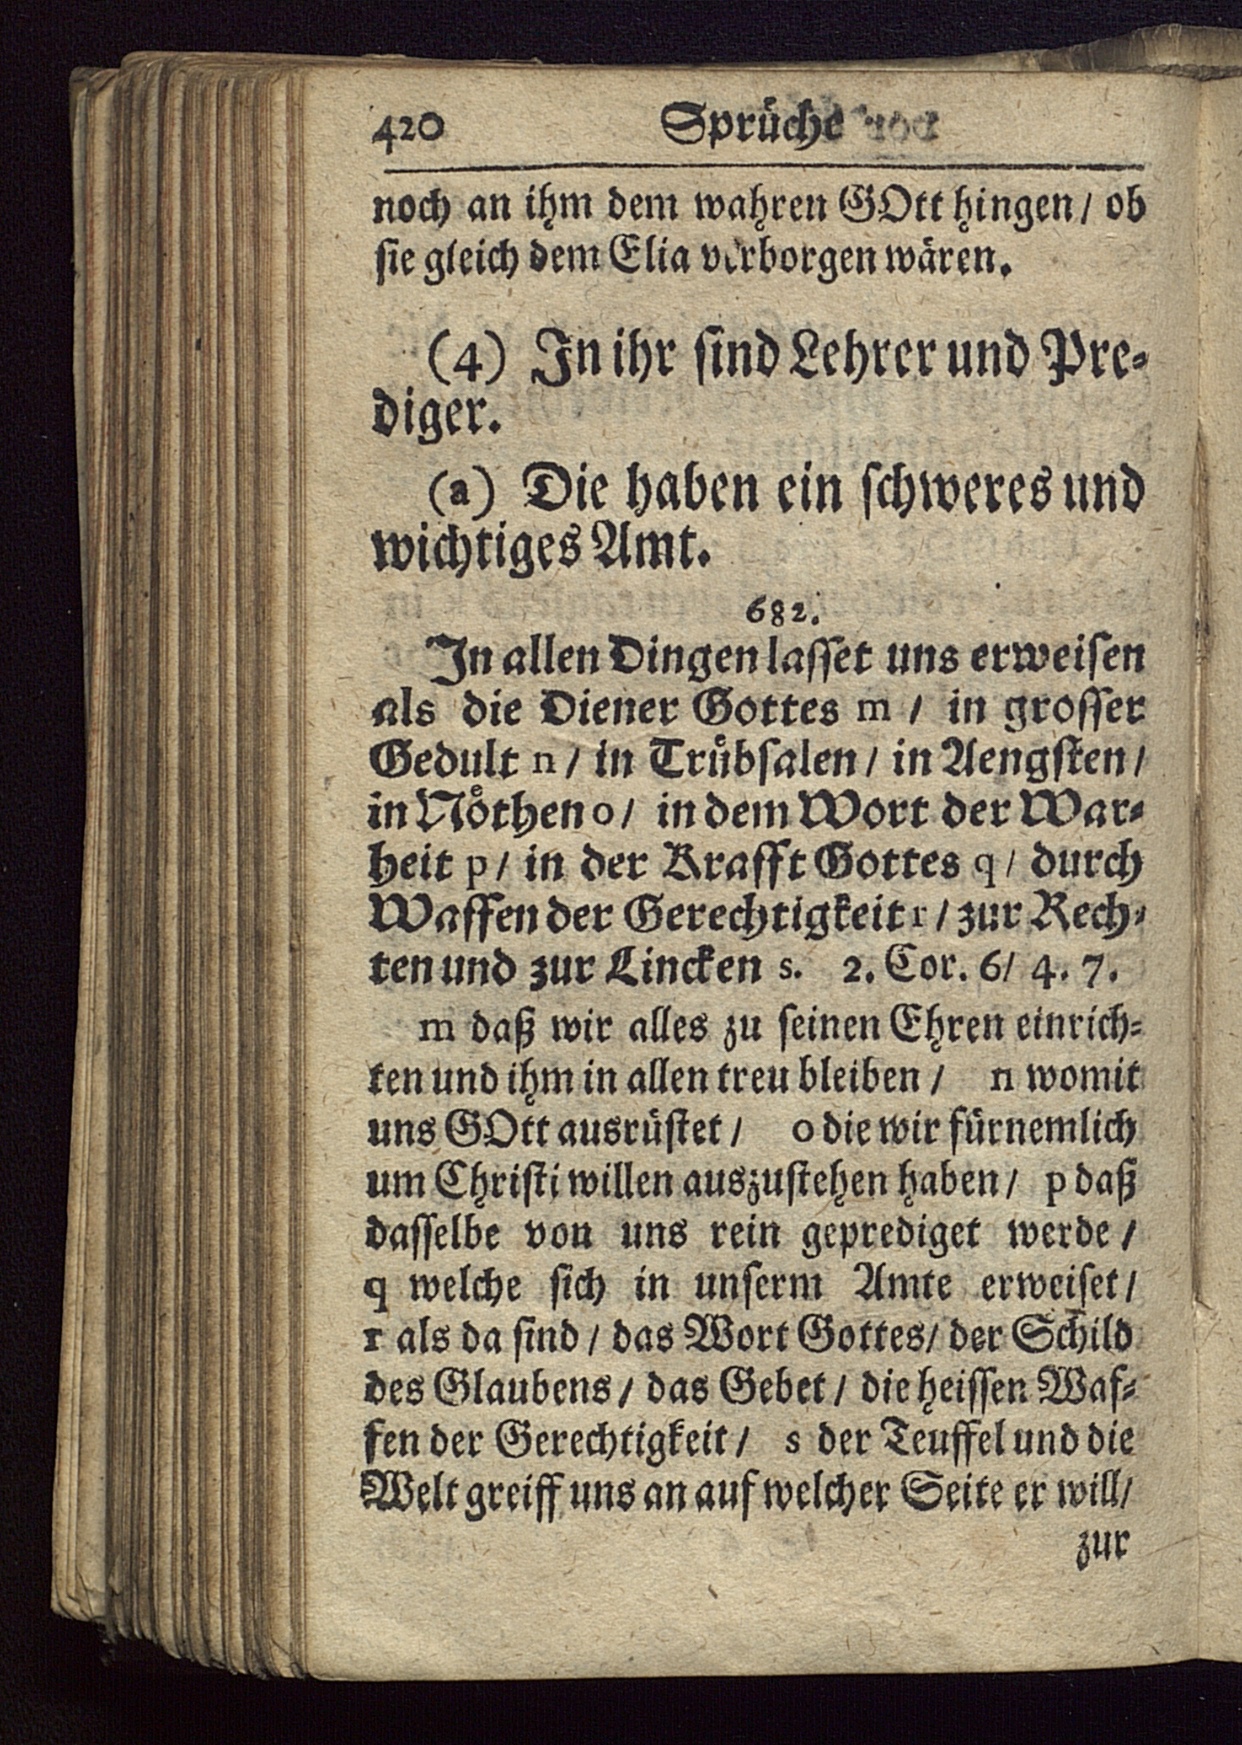 420 Sprüche
noch an ihm dem wahren GOtt hingen/ ob
sie gleich dem Elia verborgen wären.
(4) In ihr sind Lehrer und Pre-
diger.
(a) Die haben ein schweres und
wichtiges Amt.
682.
In allen Dingen lasset uns erweisen
als die Diener Gottes m / in grosser
Gedult n / in Trübsalen / in Aengsten /
in Nöthen o / in dem Wort der War-
heit p / in der Krafft Gottes q / durch
Waffen der Gerechtigkeit r / zur Rech-
ten und zur Lincken s. 2. Cor. 6/ 4. 7.
m daß wir alles zu seinen Ehren einrich-
ten und ihm in allen treu bleiben / n womit
uns GOtt ausrüstet / o die wir fürnemlich
um Christi willen auszustehen haben / p daß
dasselbe von uns rein geprediget werde /
q welche sich in unserm Amte erweiset /
r als da sind / das Wort Gottes / der Schild
des Glaubens / das Gebet / die heissen Waf-
fen der Gerechtigkeit / s der Teuffel und die
Welt greiff uns an auf welcher Seite er will /
zur